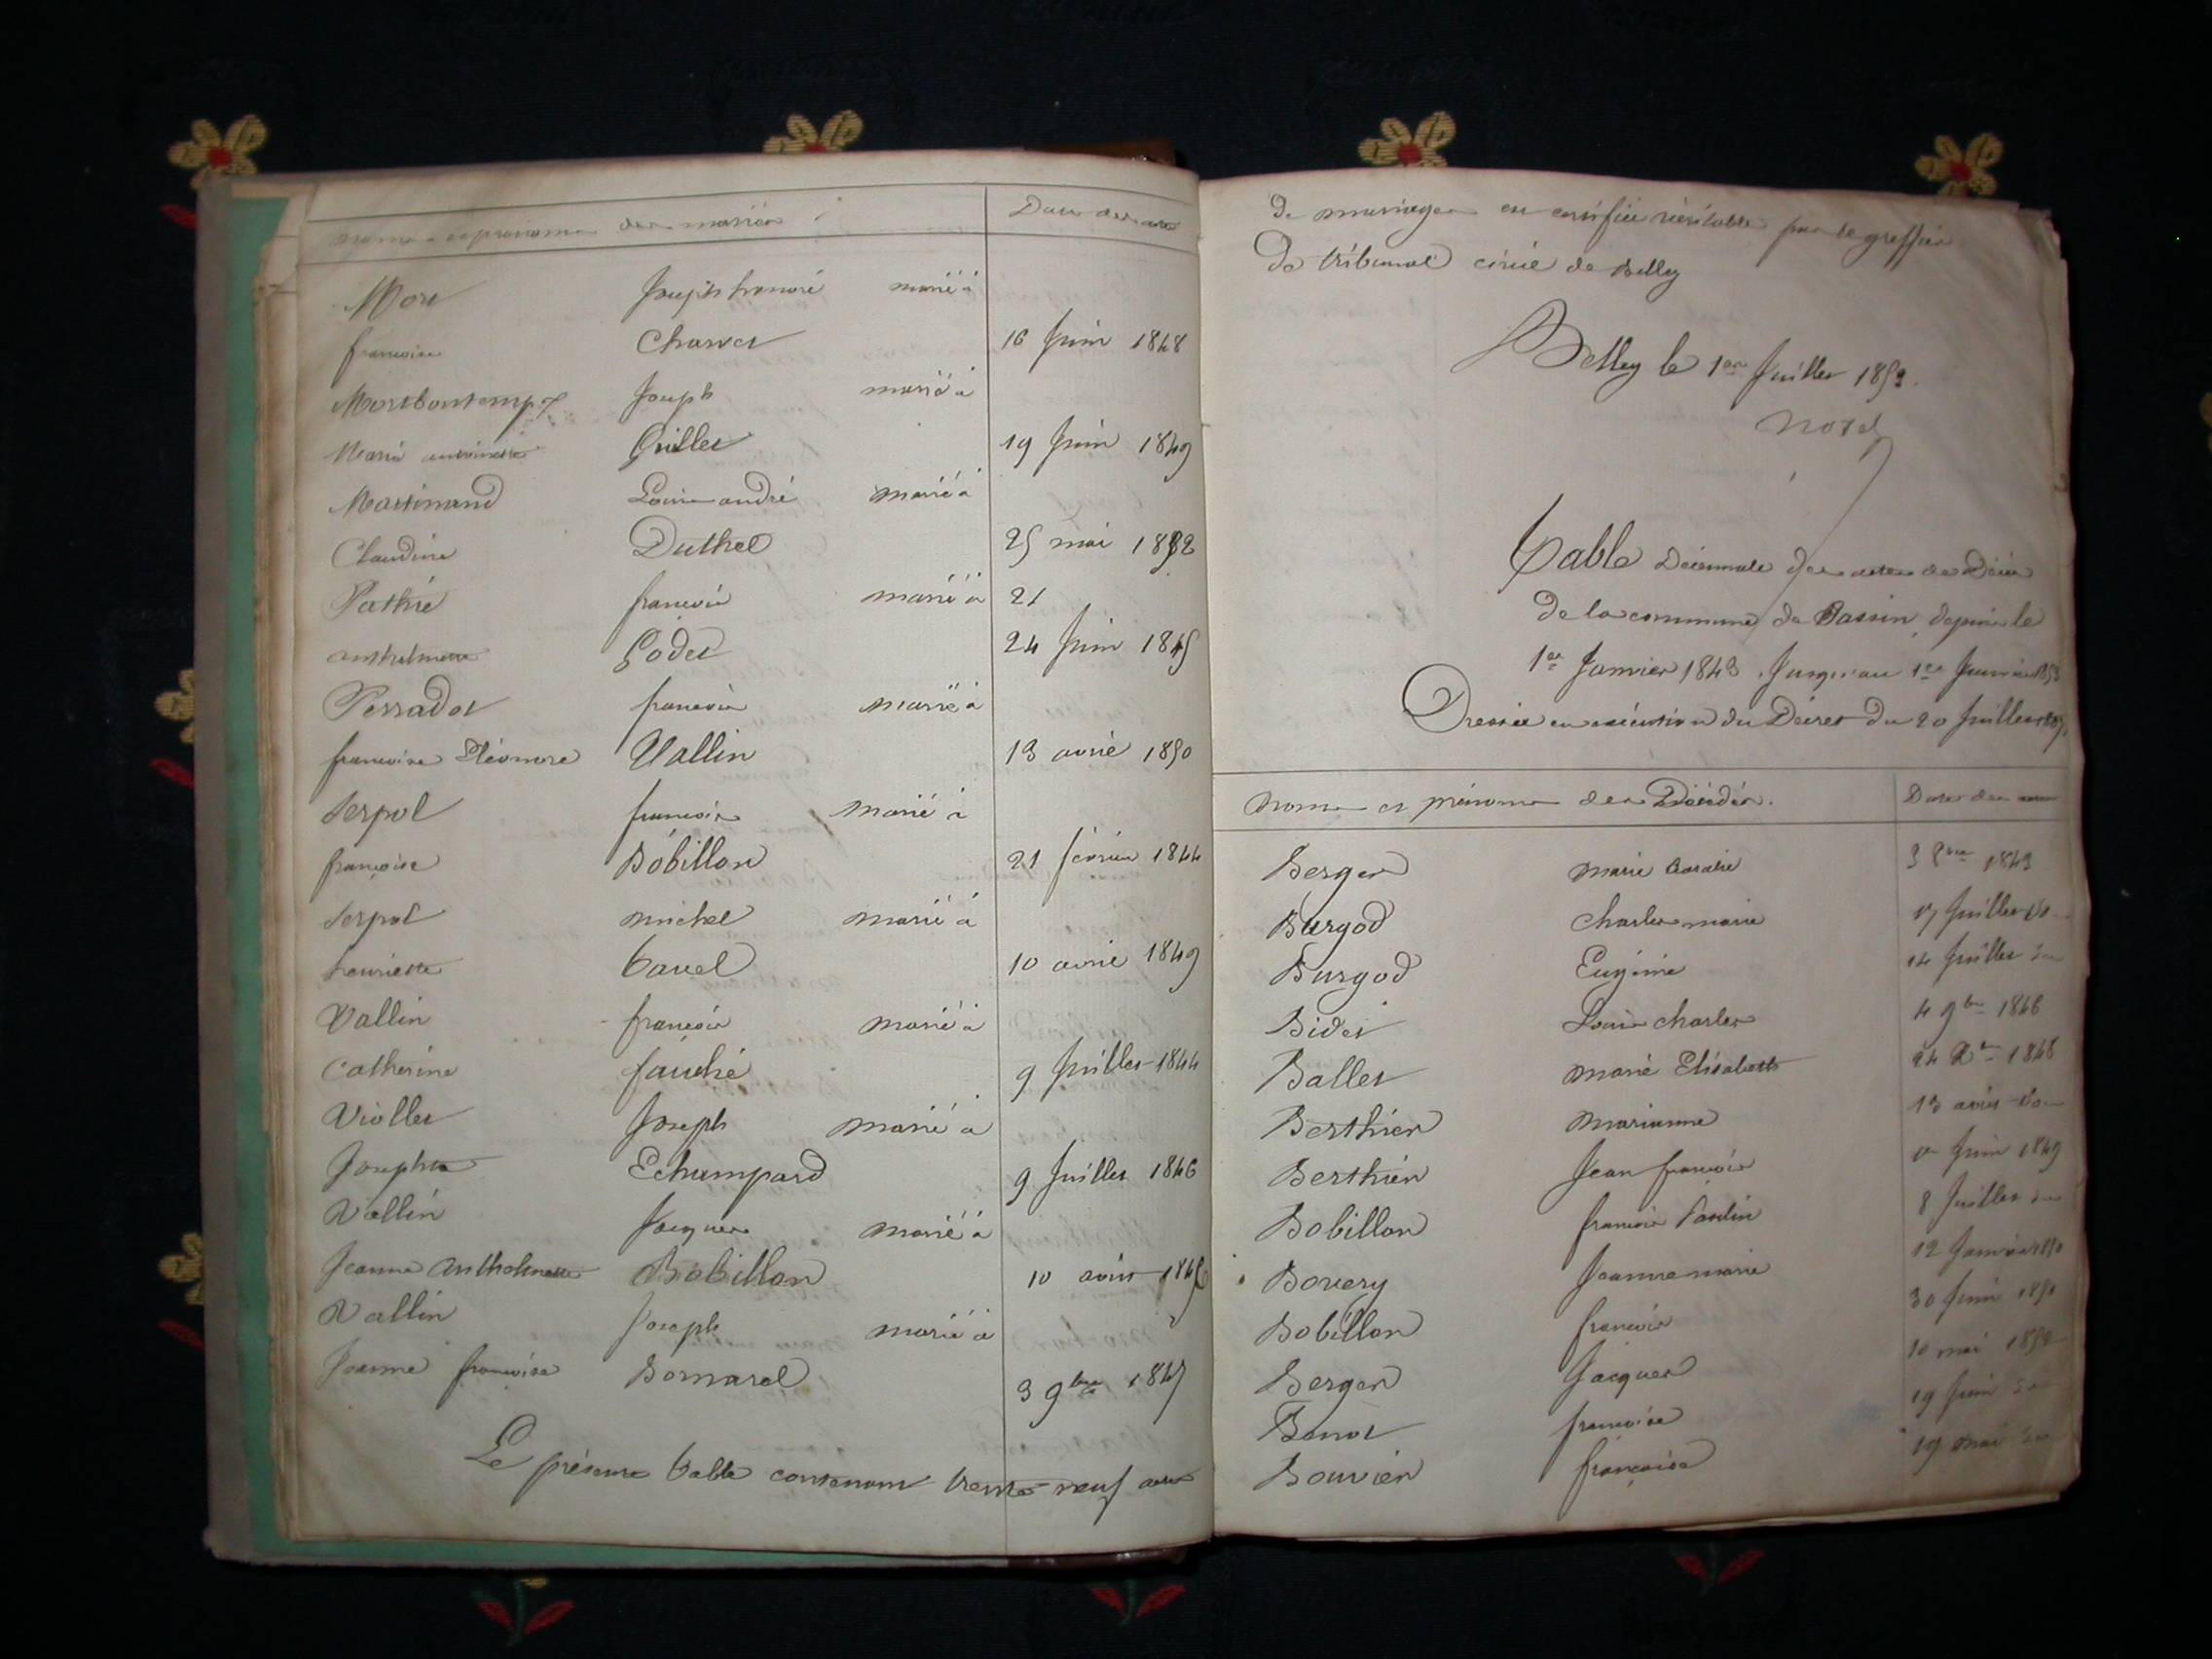 noms et prénoms des mariés
Date des actes
Mort Joseph honoré marié à
françoise Charvet 16 Juin 1848
Montbontemps Joseph marié à
Marie antoinette Guillet 19 Juin 1849
Martinand Louis andré marié à
Claudine Duthel 25 mai 1852
Pathie françois marié à 21
anthelmette Godet 24 Juin 1845
Perradot françois marié à
françoise Eléonore Vallin 13 avril 1850
Serpol françois marié à
françoise Bobillon 21 février 1844
Serpol michel marié à
henriette Cavel 10 avril 1849
Vallin françois marié à
Catherine fauché 9 Juillet 1844
Viollet Joseph marié à
Josephte Echampard 9 Juillet 1846
Vallin Jacques marié à
Jeanne Anthelmette Bobillon 10 août
Vallin Joseph marié à
Jeanne françoise Bornarel 3 9bre 1847
La présente table contenant trente-neuf actes
de mariages est certifiée véritable par le greffier
du tribunal civil de Belley
Belley le 1er Juillet 1853.
Table Décennale des actes de Décès
de la commune de depuis le
1er Janvier 1843 Jusqu'au 1er Janvier 1853
Dressée en exécution du Décret du 20 Juillet 1807
noms et prénoms des Décédés.
Date des actes
Berger marie 3 8bre 1843
Burgod Charles marie 17 Juillet do
Burgod Eugénie 14 Juillet do
Bidet Louis Charles 4 9bre 1846
Ballet marie Elisabeth 24 Xbre 1848
Berthier marianne 13 août do
Berthier Jean françois 1er Juin 1849
Bobillon françois Paulin 8 Juillet do
Bovery Jeanne marie 12 Janvier 1850
Bobillon françois 30 Juin
Berger Jacques 10 mai
Benot françoise 19 Juin do
Bouvier françoise 19 mai do